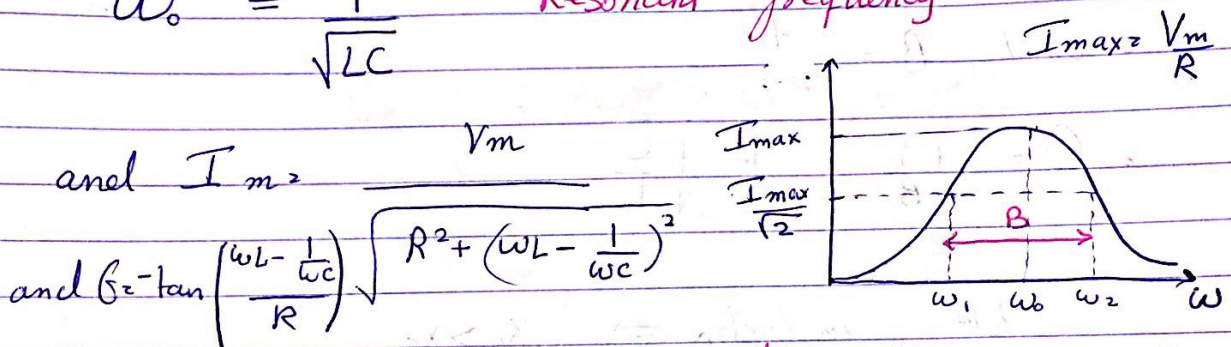 ω₀ = 1/√LC Resonant frequency
Imax = Vm/R
and Im = Vm/√(R² + (ωL - 1/ωC)²)
and = -tan((ωL - 1/ωC)/R)
Imax
Imax/√2
B
ω₁ ω₀ ω₂ ω